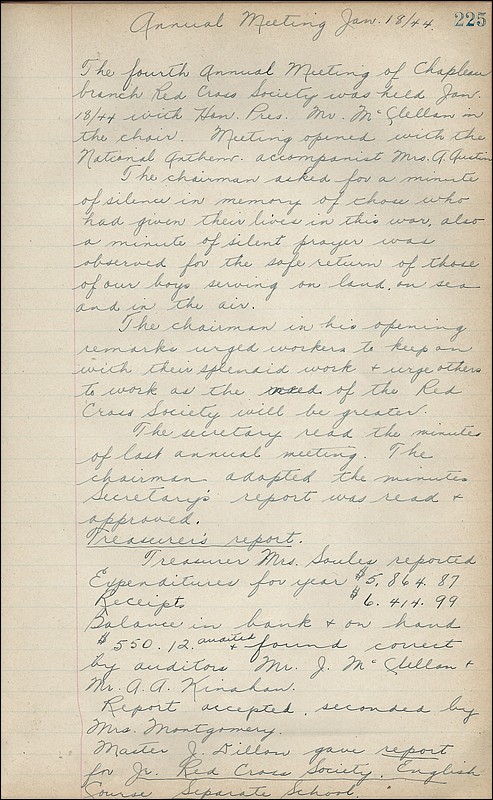 Annual Meeting Jan. 18/44. 225
The fourth Annual Meeting of Chapleau
branch Red Cross Society was held Jan.
18/44 with Hon. Pres. Mr. McClellan in
the chair. Meeting opened with the
National Anthem. accompanist Mrs. A. Austin
The chairman asked for a minute
of silence in memory of those who
had given their lives in this war, also
a minute of silent prayer was
observed for the safe return of those
of our boys serving on land, on sea
and in the air.
The chairman in his opening
remarks urged workers to keep on
with their splendid work + urge others
to work as the need of the Red
Cross Society will be greater.
The secretary read the minutes
of last annual meeting. The
chairman adopted the minutes
Secretary's report was read +
approved.
Treasurer's report.
Treasurer Mrs. Soules reported
Expenditures for year $5,864.87
Receipts $6.414.99
Balance in bank + on hand
$550.12. audited + found correct
by auditors Mr. J. McClellan +
Mr. A. A. Kinahan.
Report accepted. seconded by
Mrs. Montgomery.
Master J. Dillon gave report
for Jr. Red Cross Society. English
Course Separate School.